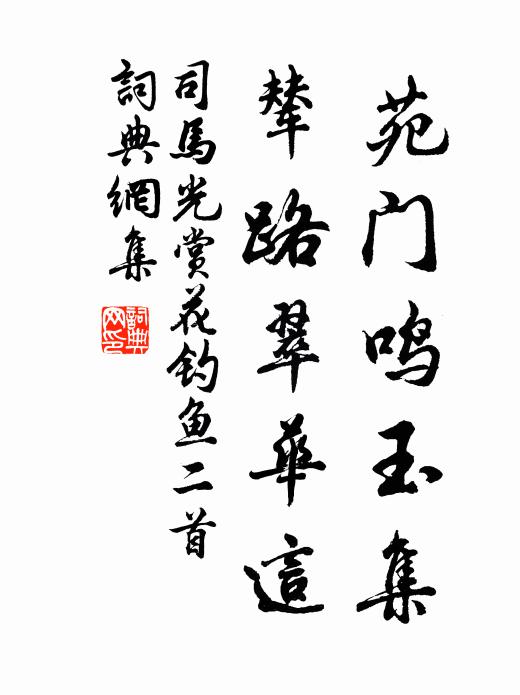 苑门鸣玉集
辇路翠华這
司馬光赏花钓鱼二首
詞典網集
詞典
网印